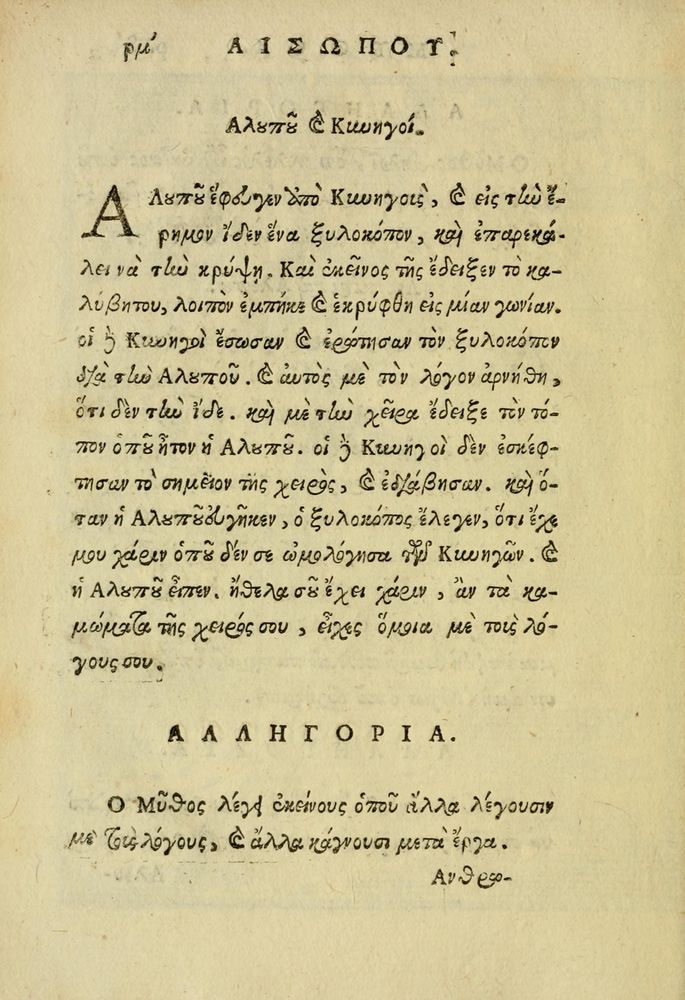 ρμʹ ΑΙΣΩΠΟΥ.
Αλουποῦ καὶ Κυνηγοί.
ΑΛουποῦ ἔφευγεν ἀπὸ Κυνηγοὺς, καὶ εἰς τὴν ἔ-
ρημον ἴδεν ἕνα ξυλοκόπον, καὶ ἐπαρεκά-
λει νὰ τὴν κρύψῃ. Καὶ ἐκεῖνος τῆς ἔδειξεν τὸ κα-
λύβητου, λοιπὸν ἐμπῆκε καὶ ἐκρύφθη εἰς μίαν γωνίαν.
οἱ δὲ Κυνηγοὶ ἔσωσαν καὶ ἐρώτησαν τὸν ξυλοκόπον
διὰ τὴν Αλουποῦ. καὶ αὐτὸς μὲ τὸν λόγον ἀρνήθη,
ὅτι δὲν τὴν ἴδε. καὶ μὲ τὴν χεῖρα ἔδειξε τὸν τό-
πον ὁποῦ ἦτον ἡ Αλουποῦ. οἱ δὲ Κυνηγοὶ δὲν ἐσκέφ-
τησαν τὸ σημεῖον τῆς χειρὸς, καὶ ἐδιάβησαν. καὶ ὅ-
ταν ἡ Αλουποῦ εὐγῆκεν, ὁ ξυλοκόπος ἔλεγεν, ὅτι ἔχε
μου χάριν ὁποῦ δέν σε ὡμολόγησα τῶν Κυνηγῶν. καὶ
ἡ Αλουποῦ εἶπεν. ἤθελα σοῦ ἔχει χάριν, ἂν τὰ κα-
μώματα τῆς χειρός σου, εἶχες ὅμοια μὲ τοὺς λό-
γους σου.
ΑΛΛΗΓΟΡΙΑ.
Ο Μῦθος λέγει ἐκείνους ὁποῦ ἄλλα λέγουσιν
με τοὺς λόγους, καὶ ἄλλα κάγνουσι μετὰ ἔργα.
Ανθρω-